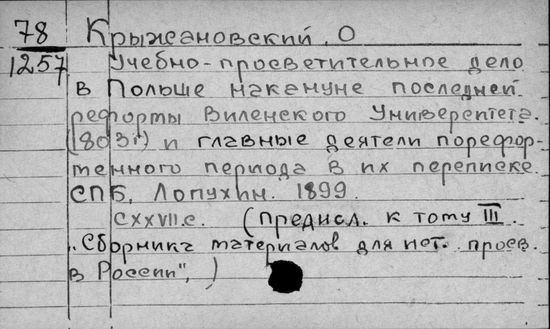 78 Крыжановский, О
1257 Учебно-просветительное дело
в Польше накануне последней
реформы Виленского Университета.
(803г) и главные деятели порефор-
менного периода в их переписке.
СПБ, Лопухин. 1899.
CXXVII.с. (предисл. к тому III.
„Сборника материалов для ист. просв.
в России",)